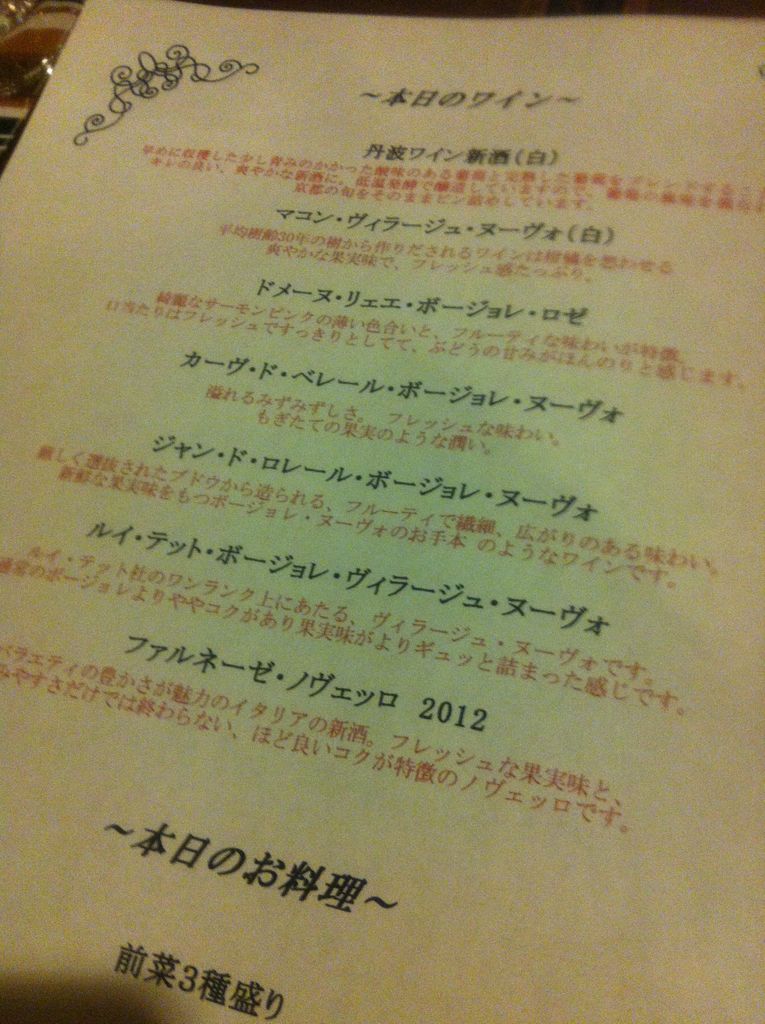 ～本日のワイン～
丹波ワイン新酒(白)
早めに収穫した少し青みのかかった酸味のある葡萄と完熟した葡萄をブレンドする
キレの良い、爽やかな新酒に。低温発酵で醸造していますので、葡萄の
京都の旬をそのままビン詰めしています。
マコン・ヴィラージュ・ヌーヴォ(白)
平均樹齢30年の樹から作りだされるワインは柑橘を思わせる
爽やかな果実味で、フレッシュ感たっぷり。
ドメーヌ・リェエ・ボージョレ・ロゼ
綺麗なサーモンピンクの薄い色合いと、フルーティな味わいが特徴。
口当たりはフレッシュですっきりとしてて、ぶどうの甘みがほんのりと感じます。
カーヴ・ド・ベレール・ボージョレ・ヌーヴォ
溢れるみずみずしさ。 フレッシュな味わい。
もぎたての果実のような潤い。
ジャン・ド・ロレール・ボージョレ・ヌーヴォ
厳しく選抜されたブドウから造られる、フルーティで繊細、広がりのある味わい。
新鮮な果実味をもつボージョレ・ヌーヴォのお手本 のようなワインです。
ルイ・テット・ボージョレ・ヴィラージュ・ヌーヴォ
ルイ・テット社のワンランク上にあたる、ヴィラージュ・ヌーヴォです。
通常のボージョレよりややコクがあり果実味がよりギュッと詰まった感じです。
ファルネーゼ・ノヴェッロ 2012
バラエティの豊かさが魅力のイタリアの新酒。フレッシュな果実味と、
みやすさだけでは終わらない、ほど良いコクが特徴のノヴェッロです。
～本日のお料理～
前菜3種盛り